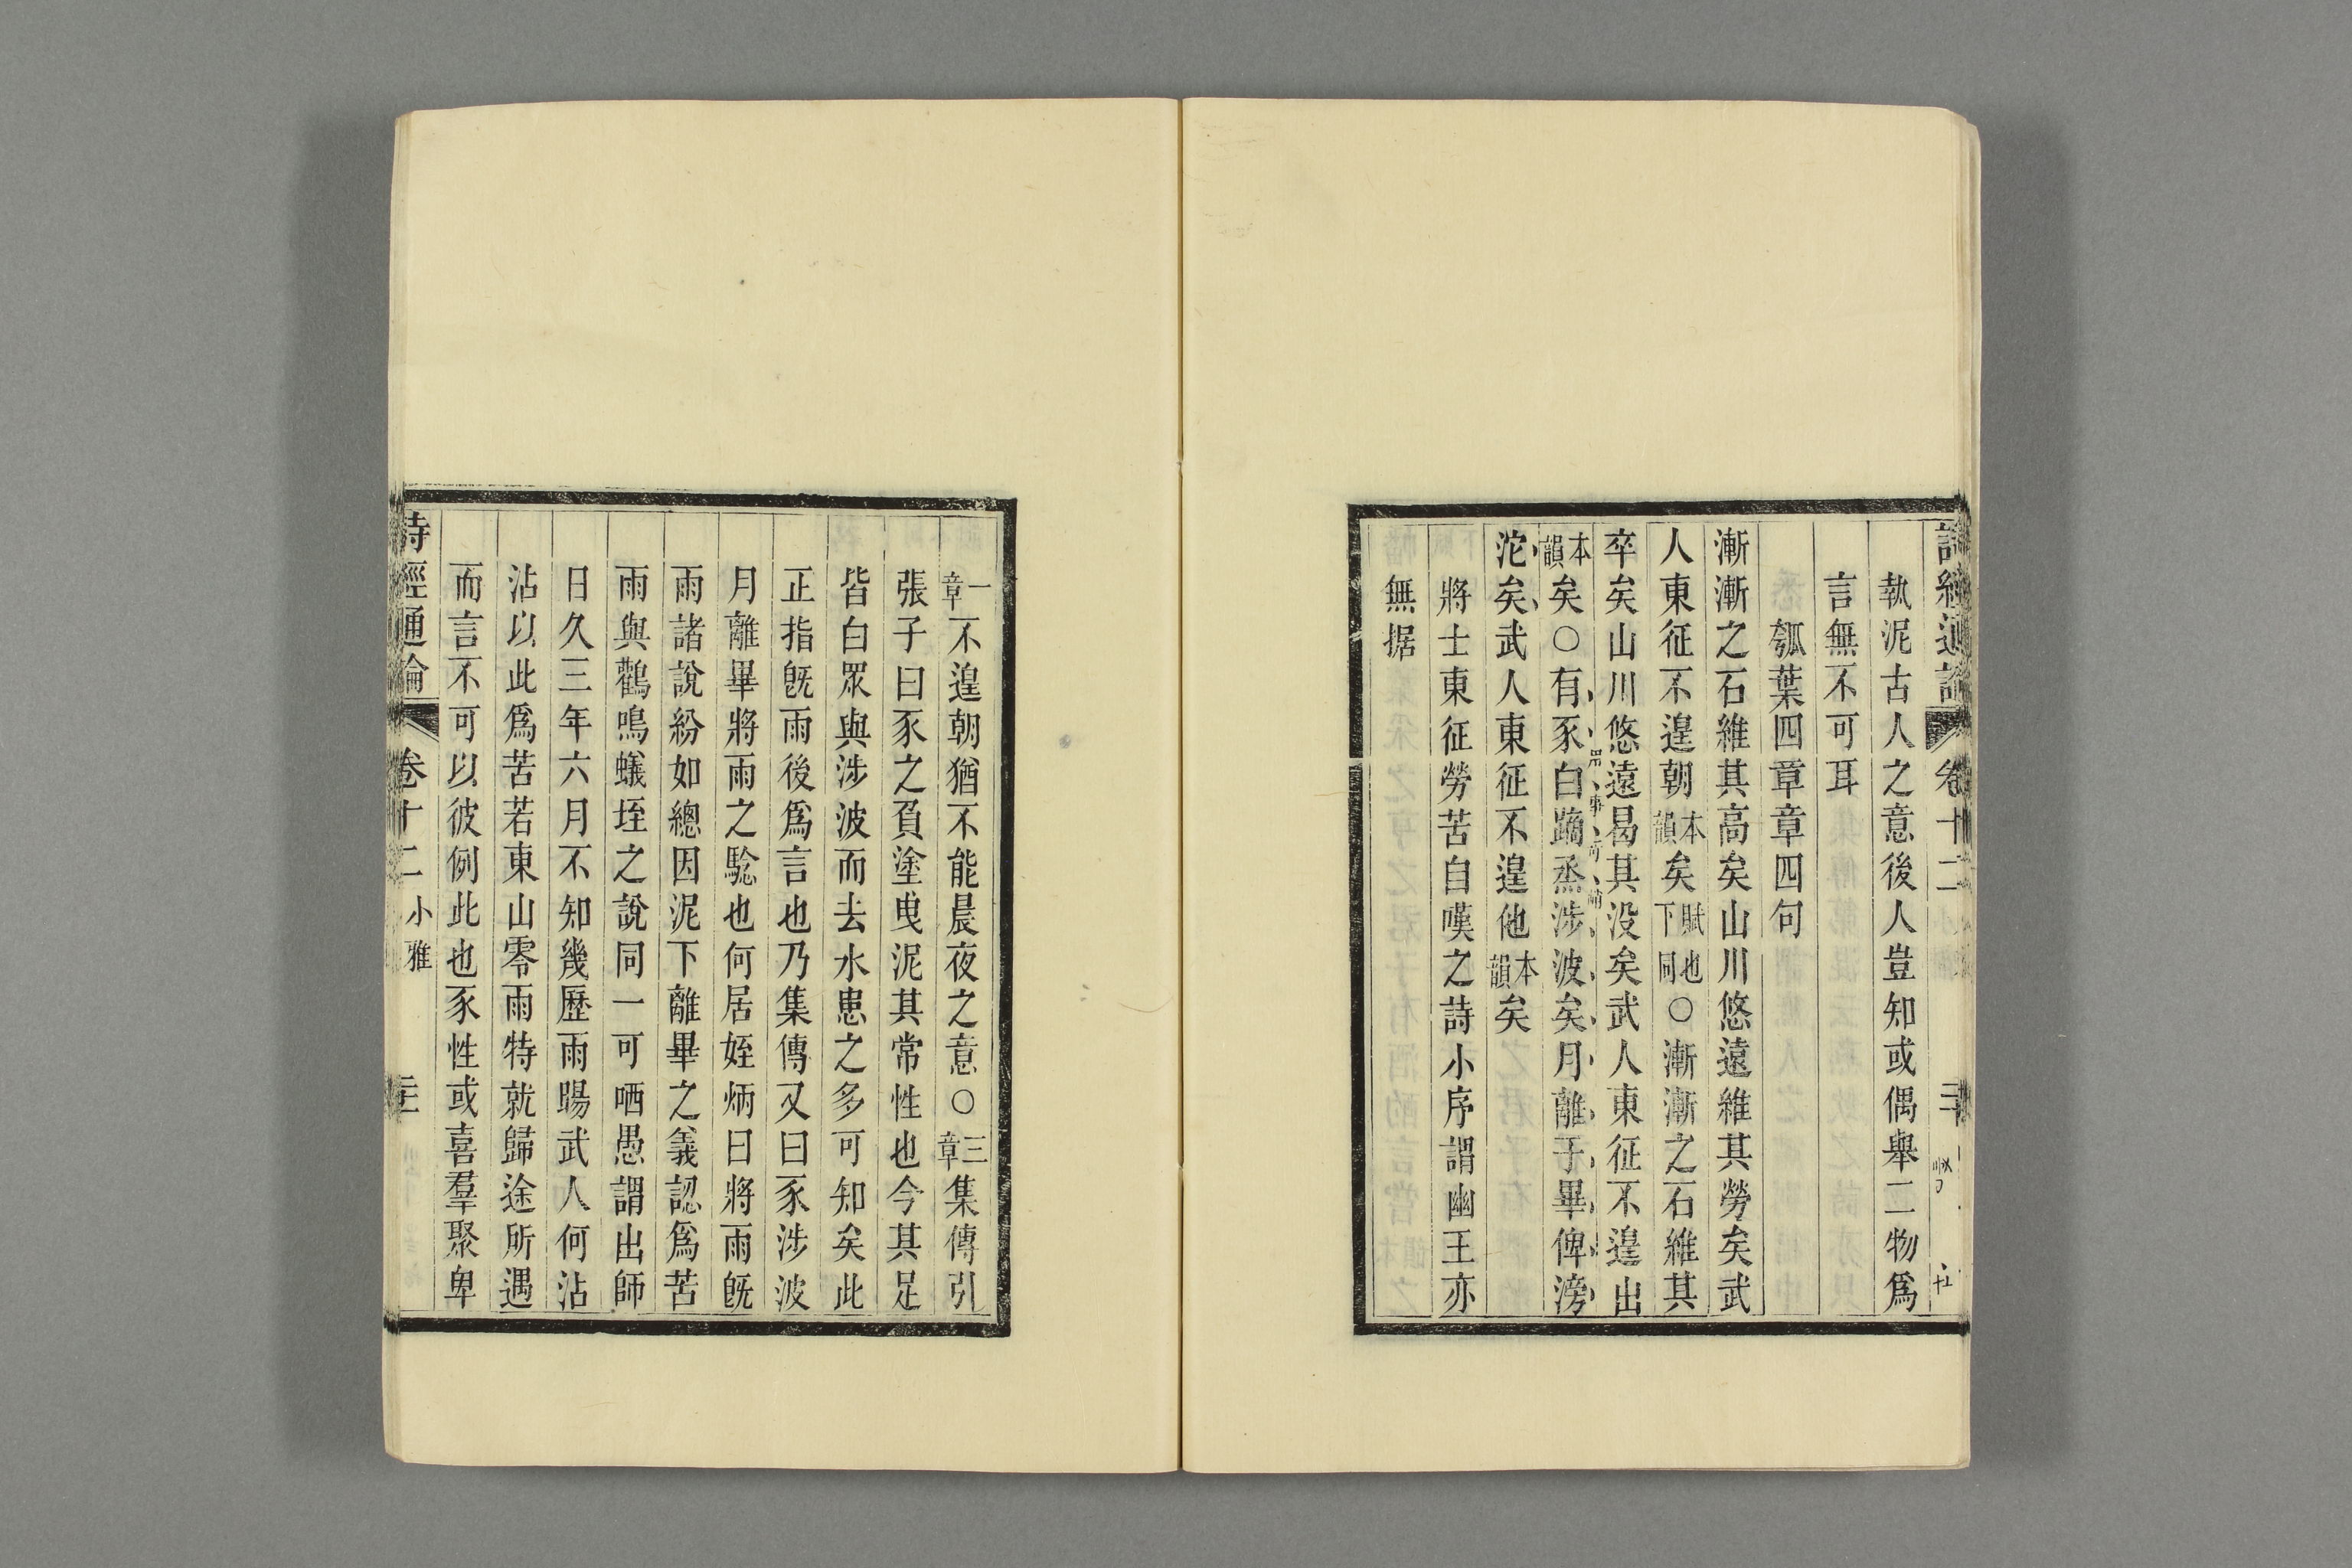 執泥古人之意後人豈知或偶舉二物爲
言無不可耳
瓠葉四章章四句
漸漸之石維其高矣山川悠遠維其勞矣武
人東征不遑朝本韻矣賦也下同○漸漸之石維其
卒矣山川悠遠曷其没矣武人東征不遑出
本韻矣○有豕白蹢烝涉波矣月離于畢俾滂
沱矣武人東征不遑他本韻矣
將士東征勞苦自嘆之詩小序謂幽王亦
無据
一章不遑朝猶不能晨夜之意○三章集傳引
張子曰豕之負塗曳泥其常性也今其足
皆白眾與涉波而去水患之多可知矣此
正指旣雨後爲言也乃集傳又曰豕涉波
月離畢將雨之驗也何居姪炳曰將雨旣
雨諸說紛如總因泥下離畢之義認爲苦
雨與鸛鳴蟻垤之說同一可哂愚謂出師
日久三年六月不知幾歷雨暘武人何沾
沾以此爲苦若東山零雨特就歸途所遇
而言不可以彼例此也豕性或喜羣聚卑
詩經通論 卷十二 小雅